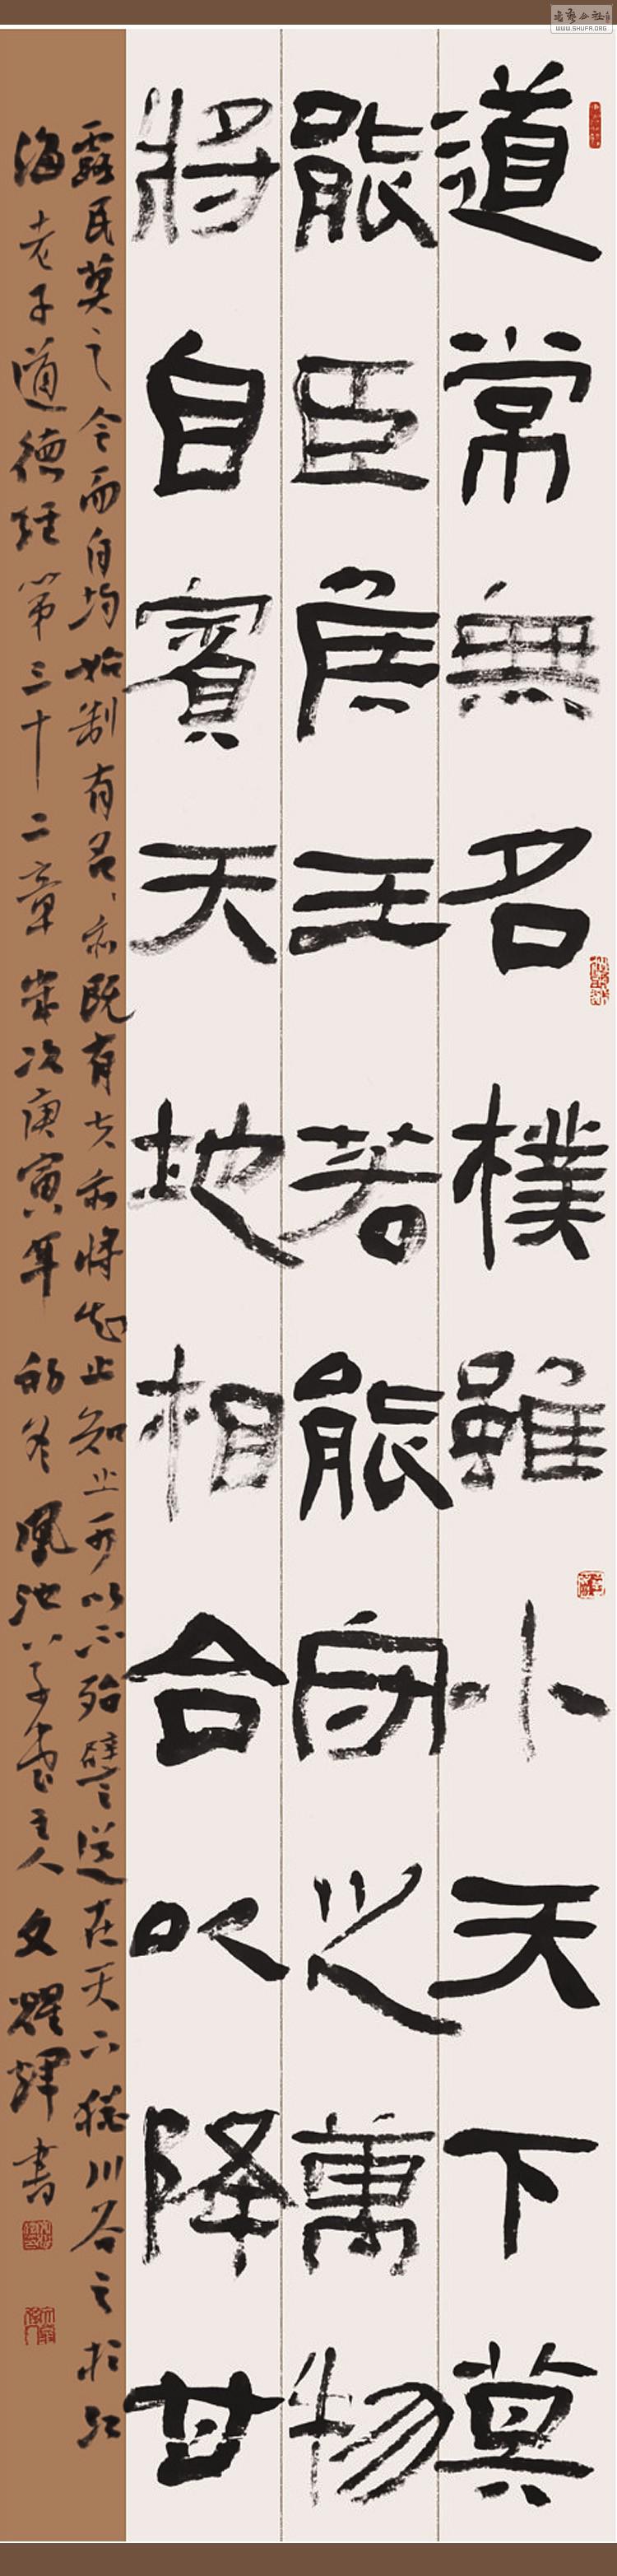 WWW.SHUFA.ORG
道常無名樸雖小天下莫
能臣侯王若能守之萬物
將自賓天地相合以降甘
露民莫之令而自均始制有名、亦既有夫亦將知止知止所以不殆譬道在天下猶川谷之於江
海老子道德經第三十二章歲次庚寅年初冬鳳池主人文耀輝書